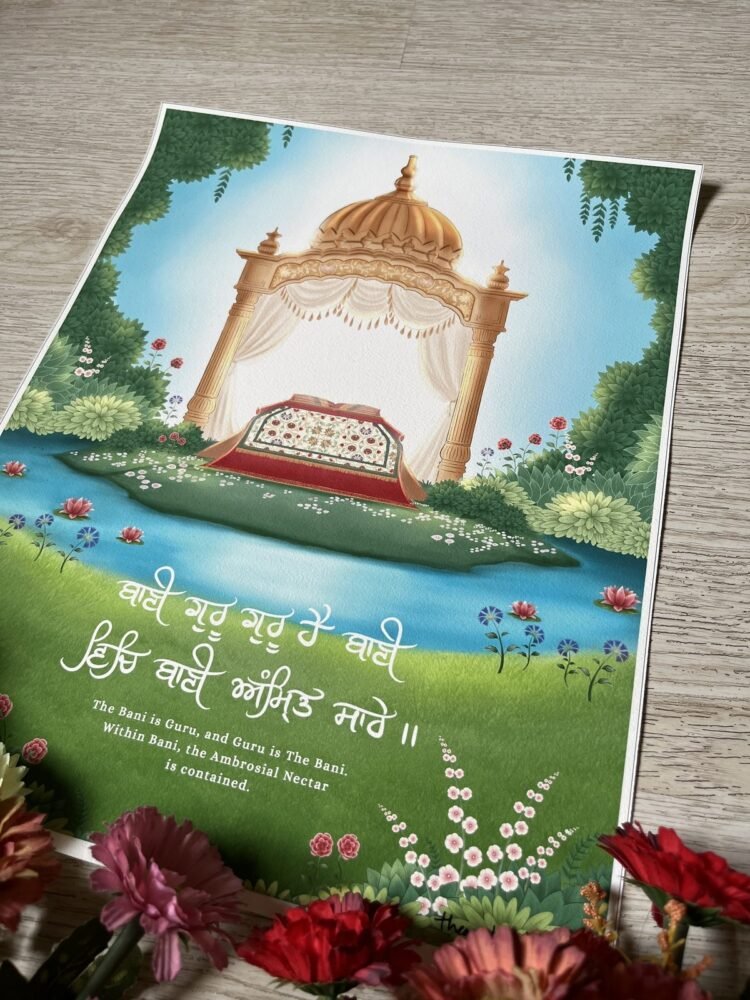 ਬਾਣੀ ਗੁਰੂ ਗੁਰੂ ਹੈ ਬਾਣੀ
ਵਿਚਿ ਬਾਣੀ ਅੰਮ੍ਰਿਤ ਸਾਰੇ ॥
The Bani is Guru, and Guru is The Bani.
Within Bani, the Ambrosial Nectar
is contained.